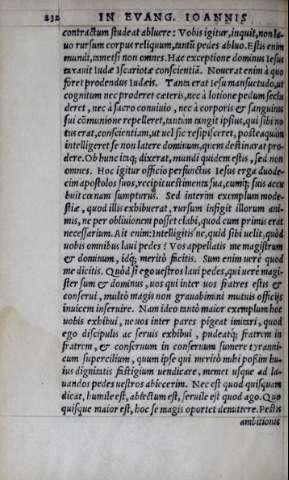 232 IN EVANG. IOANNIS
contractum studeat abluere: Vobis igitur, inquit, non la-
uo rursum corpus reliquum, tantũ pedes abluo. Estis enim
mundi, tametsi non omnes. Hac exceptione dominus Iesus
taxauit Iudæ Iscariotæ conscientiã. Nouerat enim à quo
foret prodendus Iudæis. Tanta erat Iesu mansuetudo, ut
cognitum nec proderet cæteris, nec à lotione pedum seclu
deret, nec à sacro conuiuio, nec à corporis & sanguinis
sui cõmunione repelleret, tantùm tangit ipsius, qui sibi no
tus erat, conscientiam, ut uel sic resipisceret, posteaquàm
intelligeret se non latere dominum, quem destinarat pro-
dere. Ob hunc inq; dixerat, mundi quidem estis, sed non
omnes. Hoc igitur officio perfunctus Iesus erga duode-
cim apostolos suos, recipit uestimenta sua, cumq; suis accu
buit cœnam sumpturus. Sed interim exemplum mode-
stiæ, quod illis exhibuerat, rursum infigit illorum ani-
mis, ne per obliuionem posset elabi, quod cum primis erat
necessarium. Ait enim: Intelligitis ne, quid sibi uelit, quòd
uobis omnibus laui pedes? Vos appellatis me magistrum
& dominum, idq; meritò facitis. Sum enim uerè quod
me dicitis. Quòd si ego uestros laui pedes, qui uerè magi-
ster sum & dominus, uos qui inter uos fratres estis &
conserui, multò magis non grauabimini mutuis officijs
inuicem inseruire. Nam ideo tantò maior exemplum hoc
uobis exhibui, ne uos inter pares pigeat imitari, quod
ego discipulis ac seruis exhibui, pudeatq; fratrem in
fratrem, & conseruum in conseruum sumere tyranni-
cum supercilium, quum ipse qui meritò mihi possim hu-
ius dignitatis fastigium uendicare, memet usque ad la-
uandos pedes uestros abiecerim. Nec est quod quisquam
dicat, humile est, abiectum est, seruile est quod ago. Quo
quisque maior est, hoc se magis oportet demittere. Pestis
ambitionis